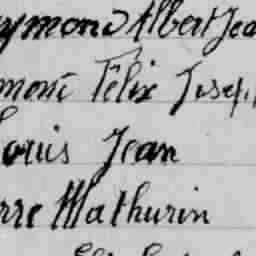 ymond Albert Jea
mond Félix Josep
Louis Jean
rre Mathurin